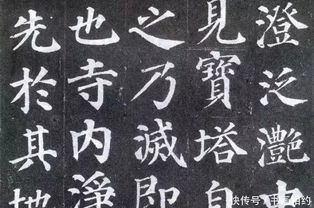 澄泛灩中
見寶塔自
之乃滅即
也寺內淨
先於其地
快传号